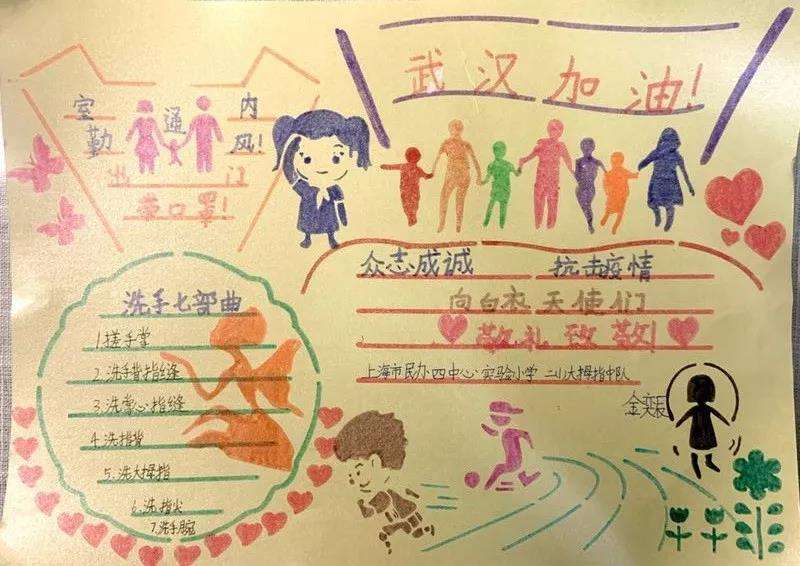 室内
勤通风!
出门
带口罩!
武汉加油!
众志成诚 抗击疫情
向白衣天使们
敬礼致敬!
上海市民办四中心实验小学 二(4)大拇指中队
洗手七部曲
1.搓手掌
2.洗手背指缝
3.洗掌心指缝
4.洗指背
5.洗大拇指
6.洗指尖
7.洗手腕